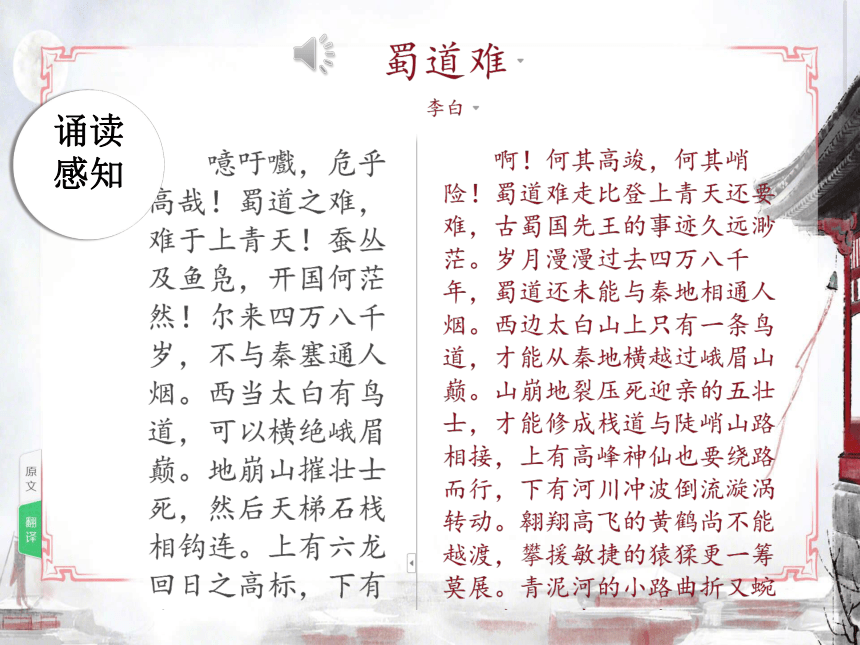 蜀道难
李白
诵读
感知
噫吁嚱，危乎
高哉！蜀道之难，
难于上青天！蚕丛
及鱼凫，开国何茫
然！尔来四万八千
岁，不与秦塞通人
烟。西当太白有鸟
道，可以横绝峨眉
巅。地崩山摧壮士
死，然后天梯石栈
相钩连。上有六龙
回日之高标，下有
啊！何其高竣，何其峭
险！蜀道难走比登上青天还要
难，古蜀国先王的事迹久远渺
茫。岁月漫漫过去四万八千
年，蜀道还未能与秦地相通人
烟。西边太白山上只有一条鸟
道，才能从秦地横越过峨眉山
巅。山崩地裂压死迎亲的五壮
士，才能修成栈道与陡峭山路
相接，上有高峰神仙也要绕路
而行，下有河川冲波倒流漩涡
转动。翱翔高飞的黄鹤尚不能
越渡，攀援敏捷的猿猱更一筹
莫展。青泥河的小路曲折又蜿
原文
翻译